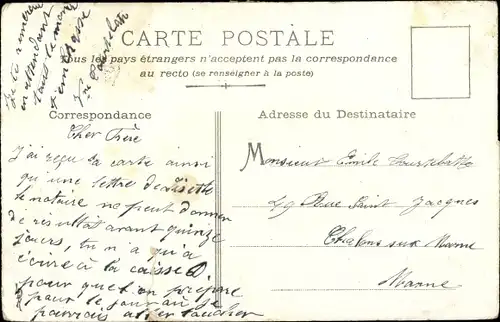 CARTE POSTALE
Tous les pays étrangers n'acceptent pas la correspondance
au recto (se renseigner à la poste)
Correspondance
Adresse du Destinataire
Cher Frère
J'ai reçu ta carte ainsi
qu'une lettre de
le notaire ne peut donner
de résultat avant quinze
jours, tu n'a qu'à
écrire à la caisse
pour que l'on prépare
pour le jour où je
pourrais aller toucher
Je te remercie
en attendant
tout le monde
t'embrasse
Monsieur Emile Courtebotte
49 Rue Saint Jacques
Chalons sur Marne
Marne